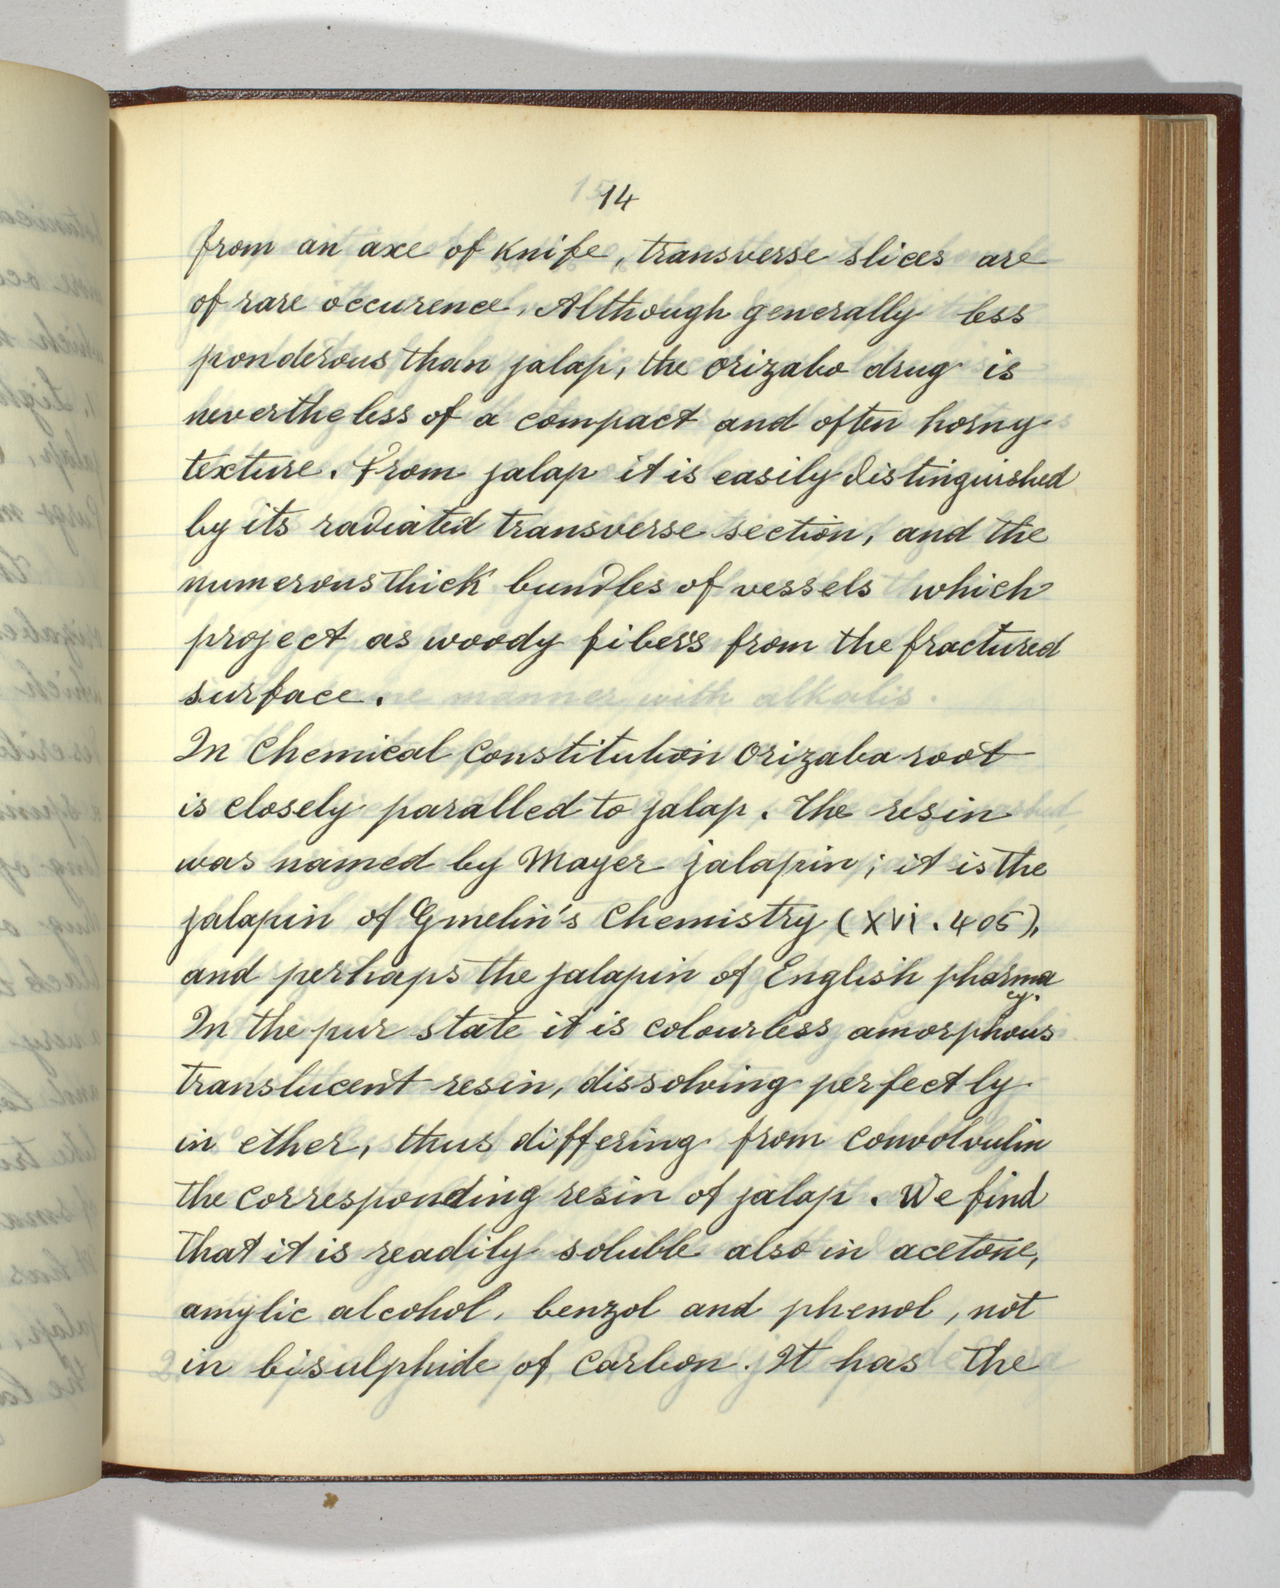 14
from an axe of knife, transverse slices are
of rare occurence. Although generally less
ponderous than jalap, the orizabo drug is
nevertheless of a compact and often horny
texture. From jalap it is easily distinguished
by its radiated transverse section, and the
numerous thick bundles of vessels which
project as woody fibers from the fractured
surface.
In Chemical Constitution Orizaba root
is closely paralled to jalap. The resin
was named by Mayer jalapin; it is the
jalapin of Gmelin's Chemistry (XVI. 405),
and perhaps the jalapin of English pharma
cy.
In the pur state it is colourless amorphous
translucent resin, dissolving perfectly
in ether, thus differing from convolvulin
the corresponding resin of jalap. We find
that it is readily soluble also in acetone,
amylic alcohol, benzol and phenol, not
in bisulphide of carbon. It has the